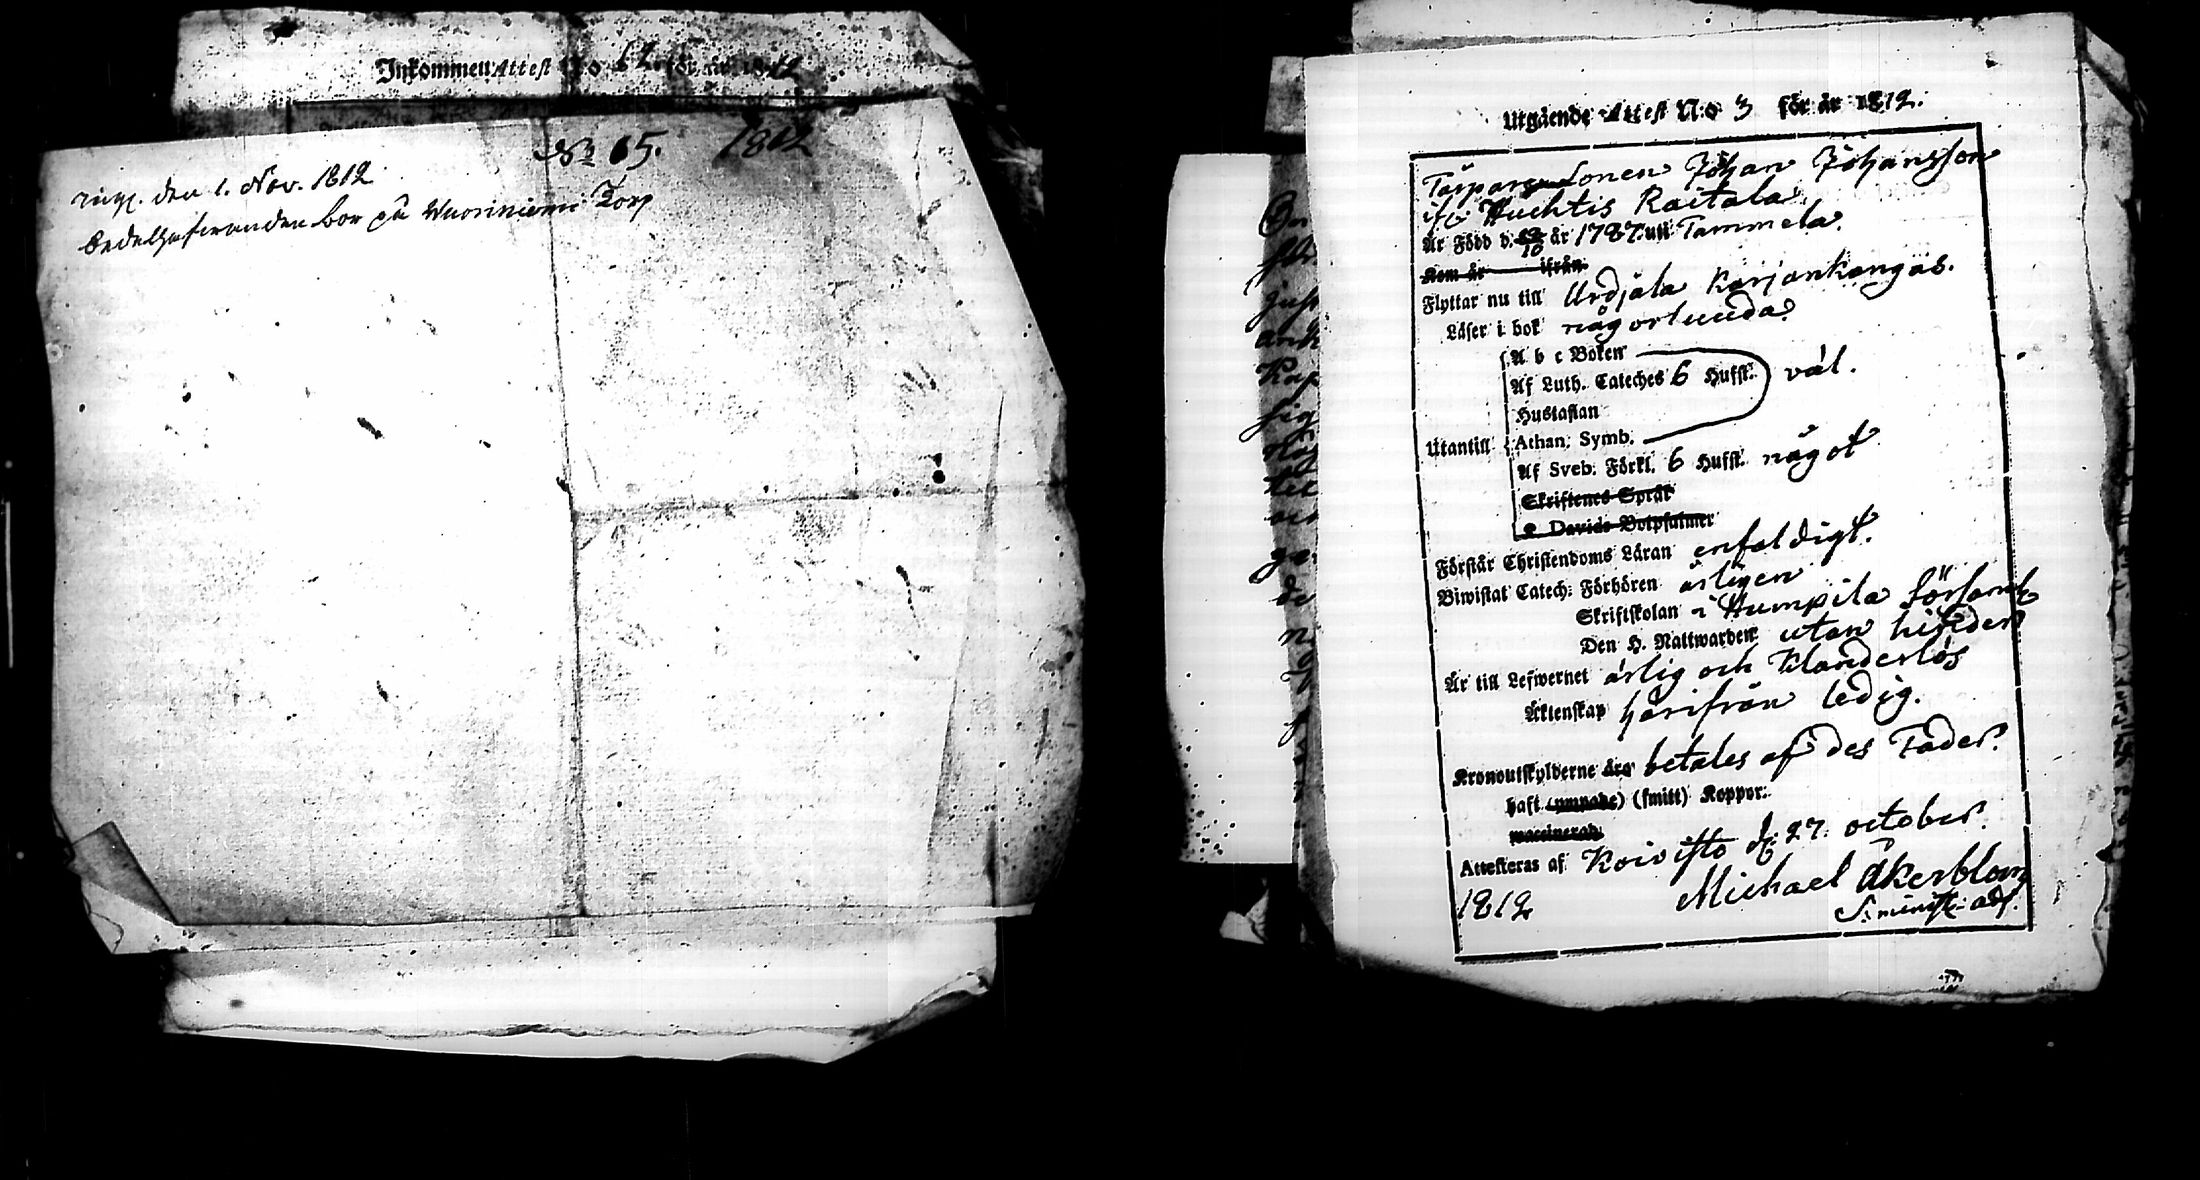 Inkommen Attest No 62. för år 1812
No 65. 1812
den 1. Nov. 1812
bor på Wuoriniemi Torp
Utgående Attest N:o 3 för år 1812.
Torpare Sonen Johan Johansson
ifr. Huchtis Raitala
Är Född d. år 1787. uti Tammela.
Kom år ifrån
Flyttar nu till Urdjala Karjankangas.
Läser i bok någorlunda
A b c Boken
Af Luth. Cateches 6 Hufst. väl.
Hustaflan
Utantill Athan. Symb.
Af Sveb. Förkl. 6 Hufst. något
Skriftenes Språk
e Davids Botpsalmer
Förstår Christendoms Läran enfaldigt.
Biwistat Catech: Förhören årligen
Skriftskolan i Humpila Församl
Den H. Nattwarden utan hinder
Är till Lefwernet ärlig och klanderlös
Äktenskap härifrån ledig.
Kronoutskylderne äro betales af des Fader.
haft (ympade) (smitt) Koppor:
vaccinerad
Attesteras af Koivisto d. 27. october.
1812 Michael Åkerblom
S. minist: adj.